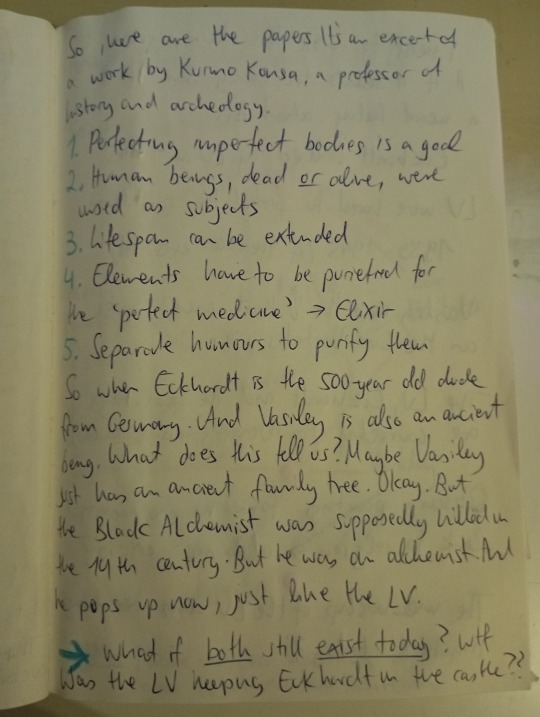 So, here are the papers. It's an excert of
a work by Kurmo Konsa, a professor of
history and archeology.
1. Perfecting imperfect bodies is a goal
2. Human beings, dead or alive, were
used as subjects
3. Lifespan can be extended
4. Elements have to be purietred for
the 'perfect medicine' → Elixir
5. Separate humours to purify them
So when Eckhardt is the 500-year old dude
from Germany. And Vasiley is also an ancient
being. What does this tell us? Maybe Vasiley
just has an ancient family tree. Okay. But
the Black Alchemist was supposedly killed in
the 14th century. But he was an alchemist. And
he pops up now, just like the LV.
→ What if both still exist today? Wtf
Was the LV keeping Eckhardt in the castle??